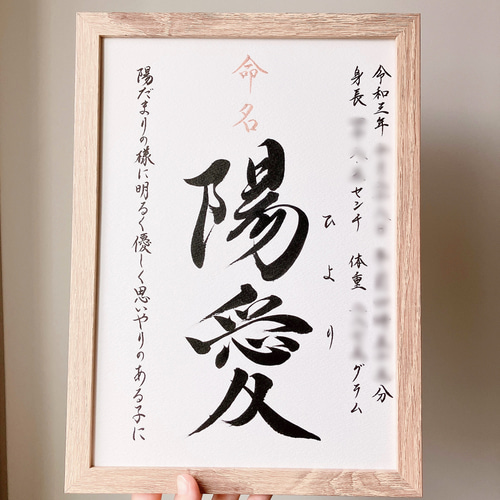 令和三年 分
身長 センチ 体重 グラム
ひより
命名
陽愛
陽だまりの様に明るく優しく思いやりのある子に